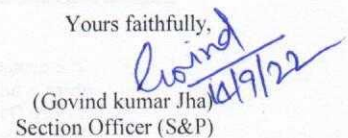 Yours faithfully,
Govind
14/9/22
(Govind kumar Jha)
Section Officer (S&P)